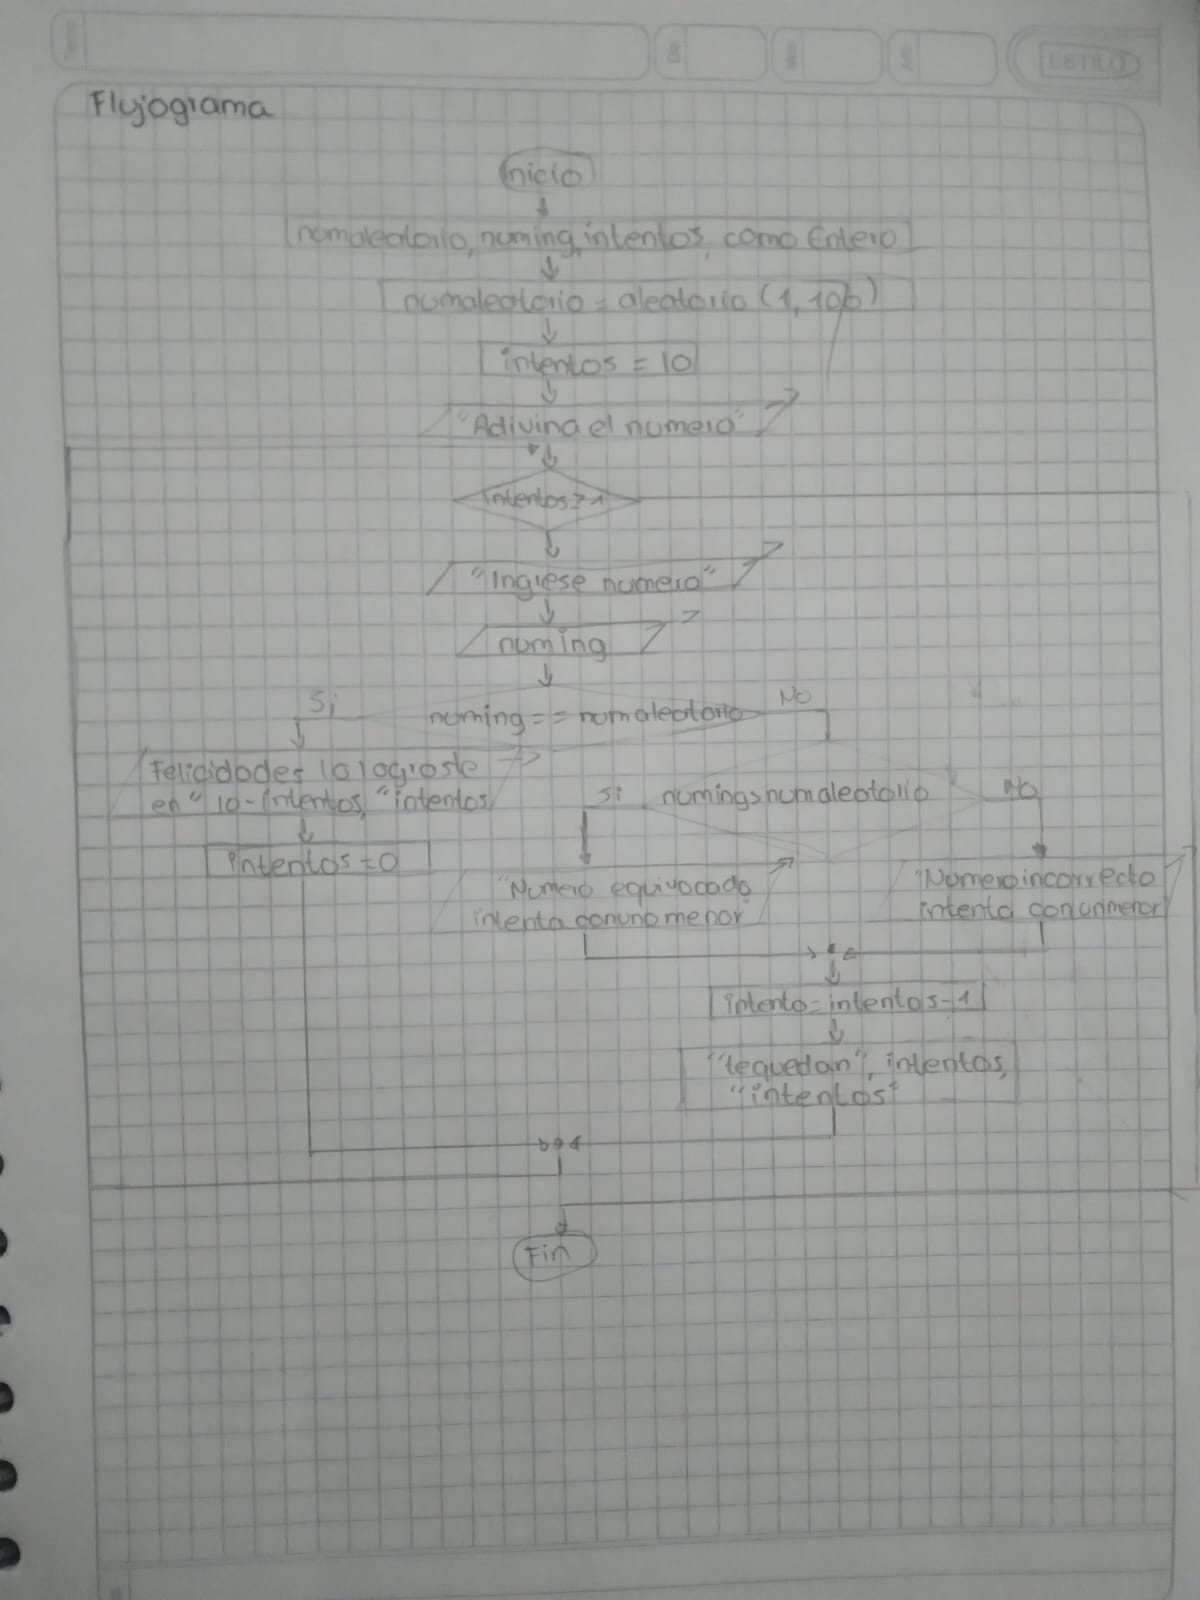 ESTILO
Flujograma
Inicio
numaleatorio, numing, intentos, como Entero
numaleatorio = aleatorio (1, 100)
intentos = 10
"Adivina el numero"
intentos > 1
"Ingrese numero"
numing
Si
No
numing == numaleatorio
Felicidades lo lograste
en" 10-intentos, "intentos
Si
numing>numaleatorio
No
intentos = 0
"Numero equivocado
intenta con uno menor
"Numero incorrecto
intenta con un menor
intento = intentos - 1
"te quedan", intentos,
"intentos"
Fin